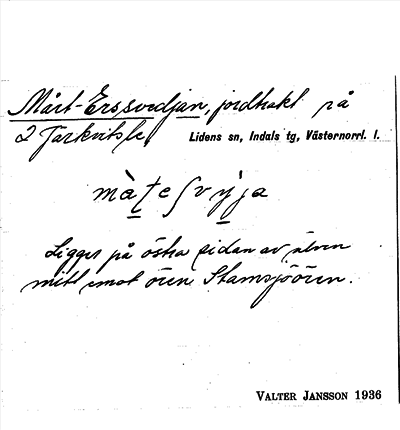 Mårt-Erssvedjan, jordtrakt på
2 Järkvitsle
Lidens sn, Indals tg, Västernorrl. l.
Ligger på östra sidan av älven
mitt emot ören Stamsjöören.
VALTER JANSSON 1936